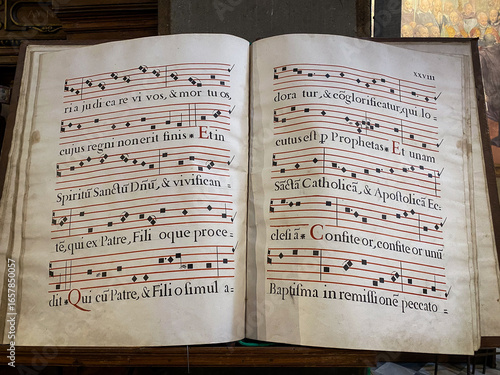 ria judi ca re vi vos, & mor tu os,
cujus regni non erit finis * Et in
Spiritũ Sanctũ Dñũ, & vivifican =
tẽ, qui ex Patre, Fili oque proce =
dit * Qui cũ Patre, & Filio simul a =
XXVIII
dora tur, & cõglorificatur, qui lo =
cutus est p Prophetas * Et unam
Sãctã Catholicã, & Apostolicã Ec =
clesiã * Confiteor, confiteor unũ
Baptisma in remissionẽ peccato =
Adobe Stock | #1657850057